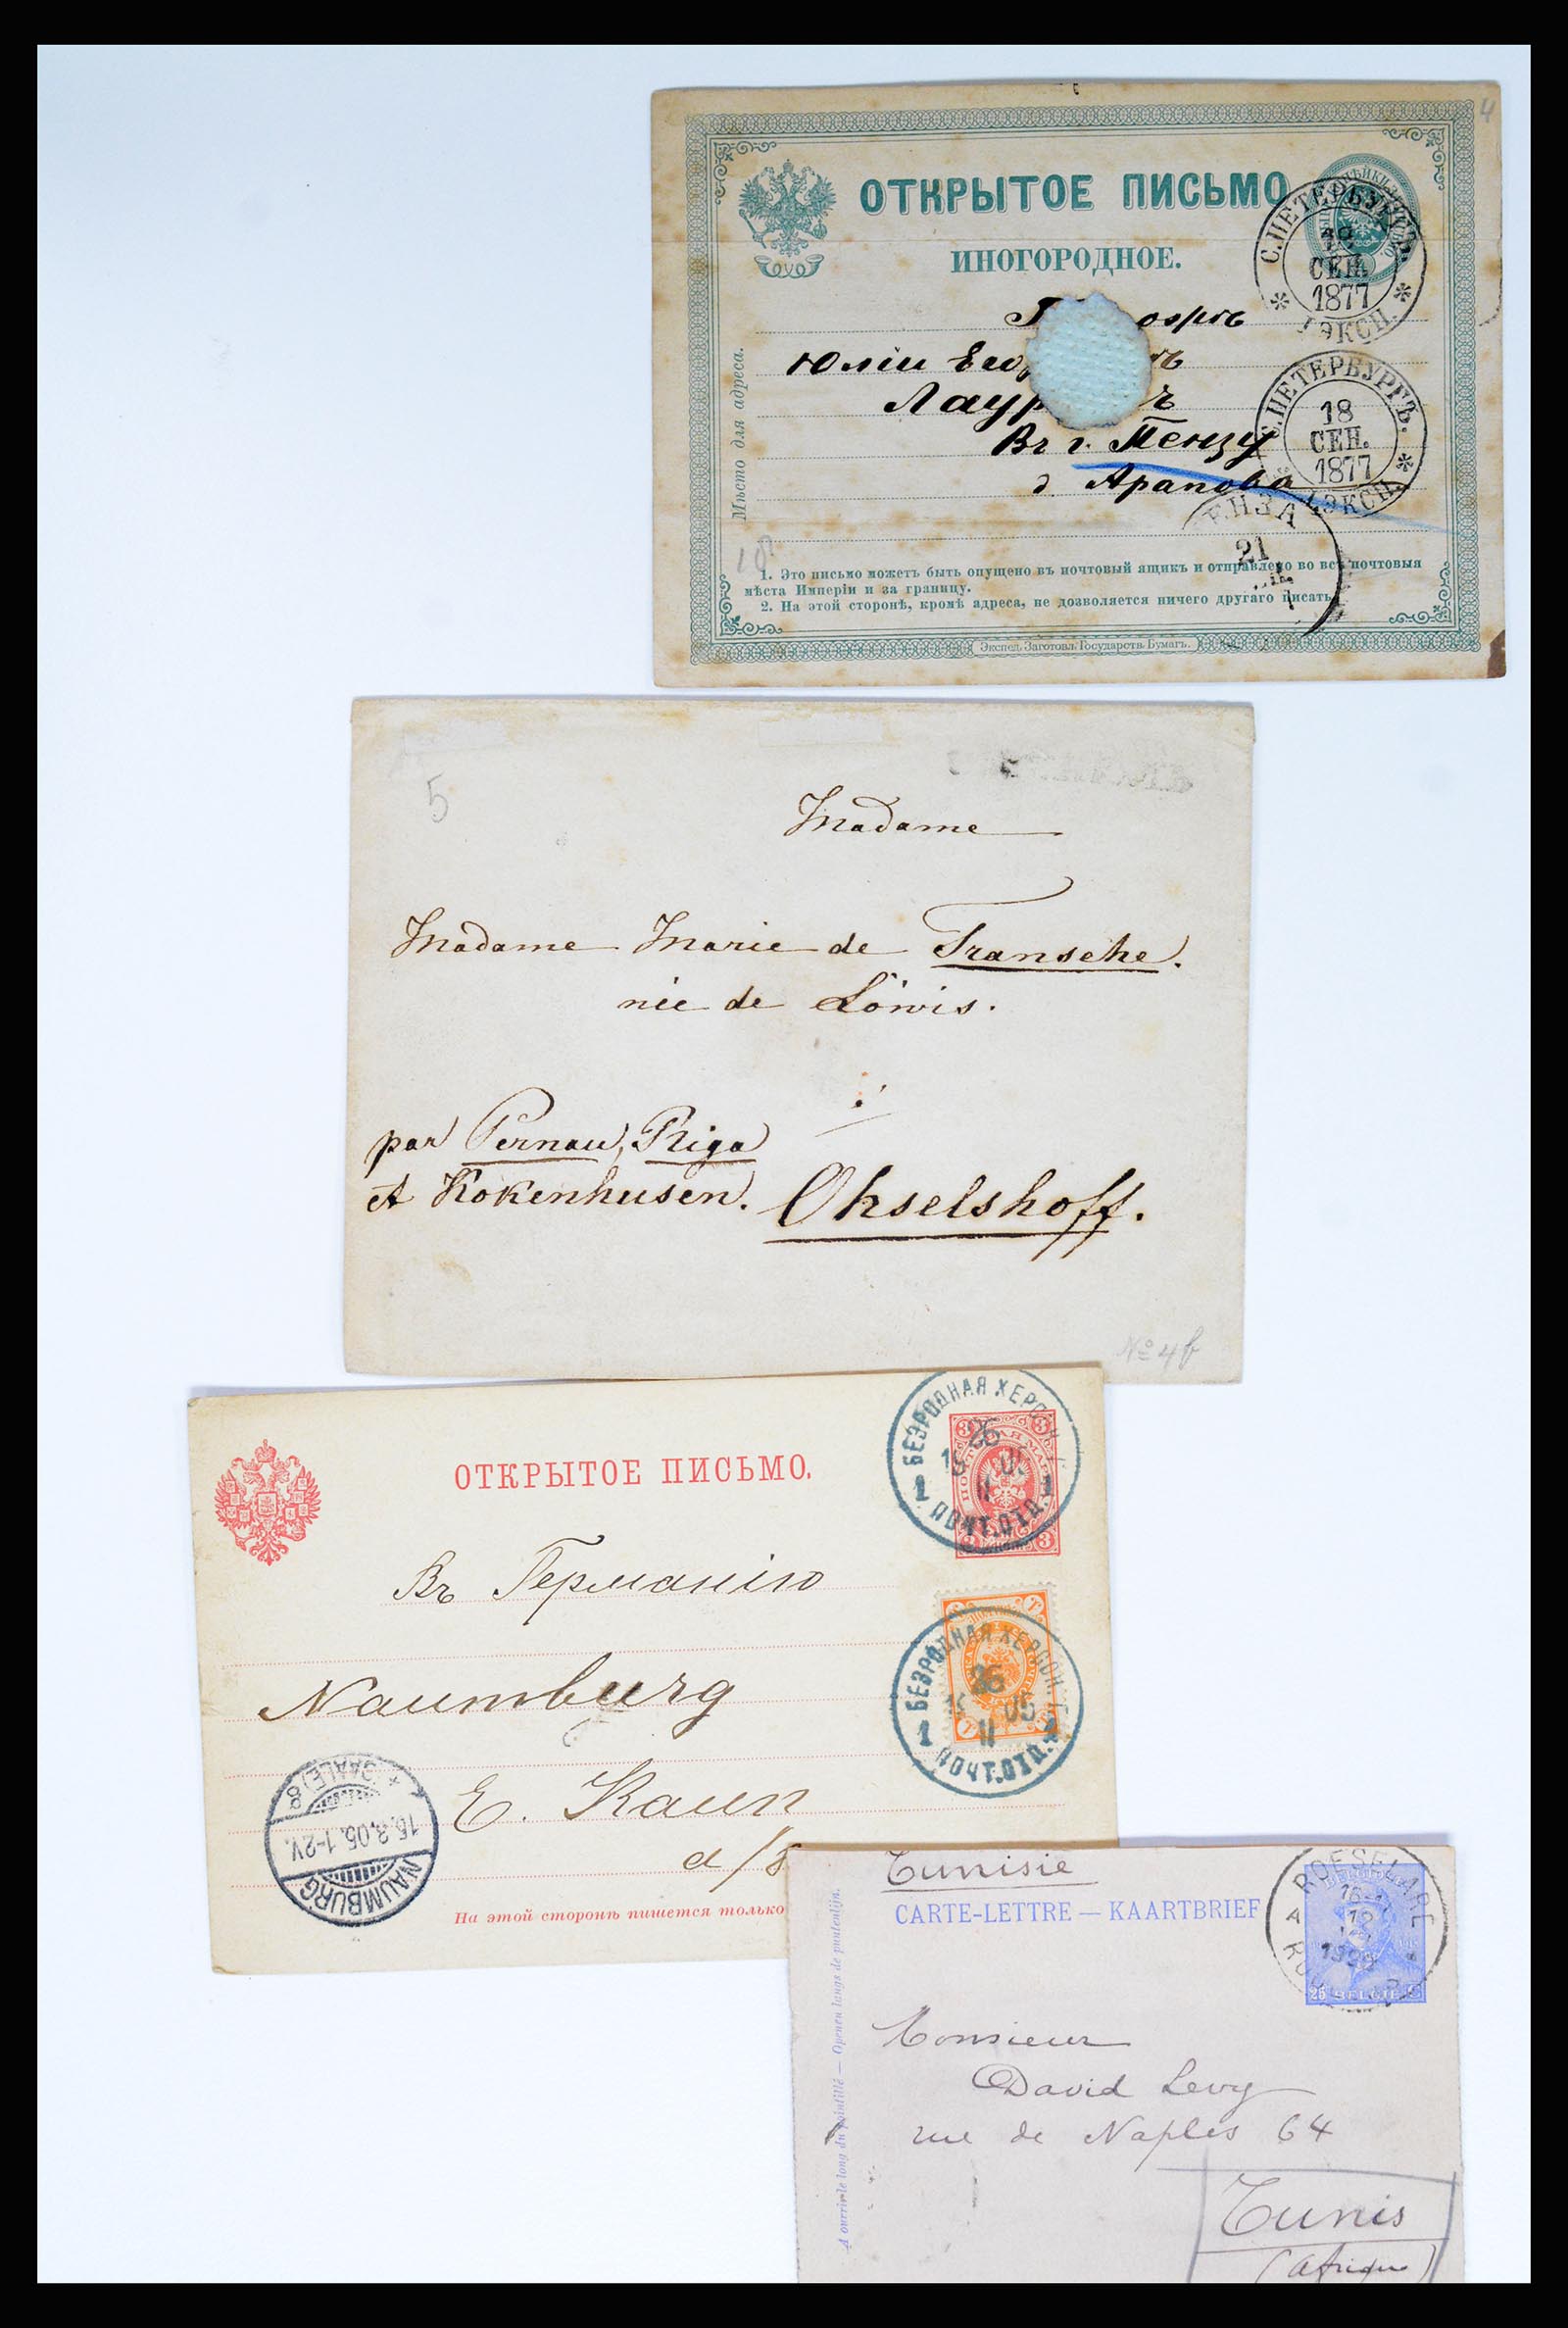 4
ОТКРЫТОЕ ПИСЬМО
ИНОГОРОДНОЕ.
С.ПЕТЕРБУРГЪ.
18
СЕН.
1877
ЭКСП.
Юліи
Лаур
Въ г. Пензу
д Арапова
С.ПЕТЕРБУРГЪ.
18
СЕН.
1877
ЭКСП.
ЕНЗА
21
Мѣсто для адреса.
1. Это письмо можетъ быть опущено въ почтовый ящикъ и отправлено во всѣ почтовыя
мѣста Имперіи и за границу.
2. На этой сторонѣ, кромѣ адреса, не дозволяется ничего другаго писать.
Экспед. Заготовл. Государств. Бумагъ.
5
Madame
Madame Marie de Transehe.
née de Löwis.
par Pernau, Riga
et Kokenhusen.
Ohselshoff.
No 4b
ОТКРЫТОЕ ПИСЬМО.
БЕЗРОДНАЯ ХЕРСОН.
26
15 05
II
1 ПОЧТ.ОТД. 1
3 3
3
Въ Германію
Naumburg
E. Kaun
a/S
БЕЗРОДНАЯ ХЕРСОН. Г.
26
15 05
II
1 ПОЧТ.ОТД. 1
NAUMBURG
16.3.05.1-2V.
(SAALE) 8
На этой сторонѣ пишется только
Tunisie
CARTE-LETTRE — KAARTBRIEF
ROESELARE
A
25 BELGIE
Monsieur
David Levy
rue de Naples 64
Tunis
(Afrique)
A ouvrir le long du pointillé — Openen langs de puntenlijn.